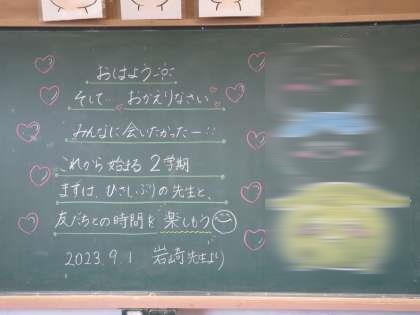 おはよう
そして… おかえりなさい
みんなに会いたかったー!!
これから始まる2学期
まずは、ひさしぶりの先生と、
友だちとの時間を楽しもう
2023.9.1 岩崎先生より